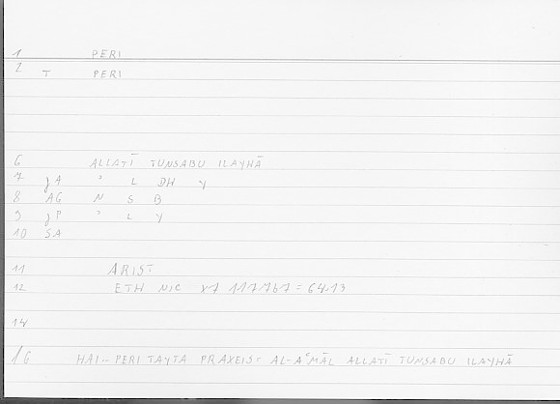 1 PERI
2 T PERI
6 ALLATĪ TUNSABU ILAYHĀ
7 ʾ L DH Y
8 AG N S B
9 ʾ L Y
10 SA
11 ARIST
12 ETH NIC
14
16 HAI.. PERI TAYTA PRAXEIS = AL-AʿMĀL ALLATĪ TUNSABU ILAYHĀ